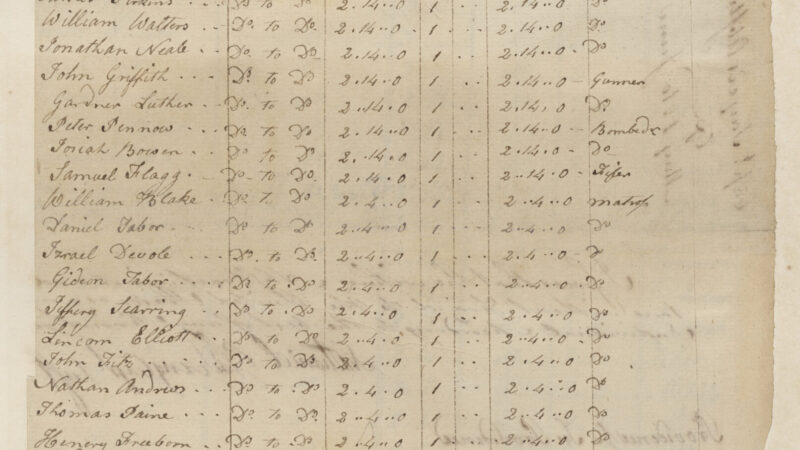 William Walters - - Do to Do. 2.14..0 1 .. 2.14..0 - Do
Jonathan Neale - Do. to Do 2.14..0 1 .. 2.14..0 - Do
John Griffith . . . Do. to Do 2.14..0 1 .. 2.14..0 - Gunner
Gardner Luther - - Do to Do 2.14..0 1 .. 2.14..0 Do
Peter Pennow . . . Do to Do 2.14..0 1 .. 2.14..0 - Bombadr
Josiah Bowen - - Do to Do 2.14..0 1 .. 2.14..0 - Do
Samuel Flagg - - Do to Do 2.14..0 1 .. 2.14.0 - Fifer
William Blake - Do to Do 2..4..0 1 .. 2..4..0 matross
Daniel Tabor - - - Do to Do 2..4..0 1 .. 2..4..0 Do
Izrael Devole . . . Do. to Do. 2..4..0 1 .. 2..4..0 - Do
Gideon Tabor . . . Do to Do. 2..4..0 1 .. 2..4..0 Do
Jeffery Scarring - - Do to Do 2..4..0 1 .. 2..4..0 Do
Lincorn Elliott - - Do to Do 2..4..0 1 .. 2..4..0 . Do
John Fitz . . . . . Do to Do 2..4..0 1 .. 2..4..0 Do
Nathan Andrews . . Do to Do 2..4..0 1 .. 2..4..0 Do
Thomas Paine - - - Do. to Do. 2..4..0 1 .. 2..4..0 Do
Henery Freeborn - - Do. to Do 2..4..0 1 .. 2..4..0 Do